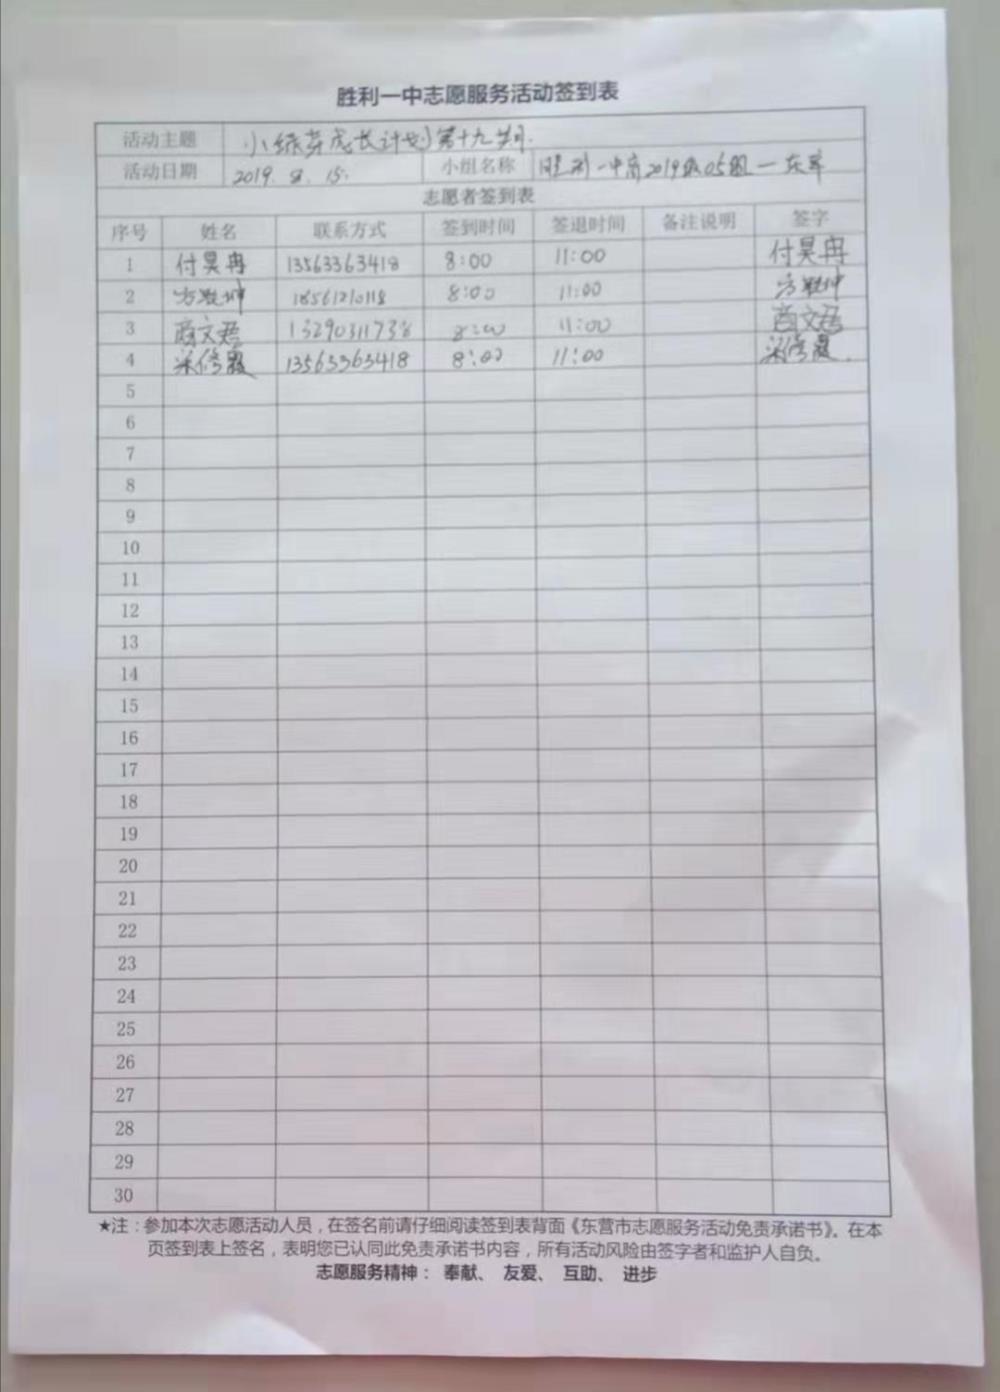 胜利一中志愿服务活动签到表
活动主题 小绿芽成长计划第十九期.
活动日期 2019. 8. 15. 小组名称 胜利一中高2019级05组一东军
志愿者签到表
序号 姓名 联系方式 签到时间 签退时间 备注说明 签字
1 付昊冉 13563363418 8:00 11:00 付昊冉
2 18561210118 8:00 11:00
3 商文君 13290311738 8:00 11:00 商文君
4 13563363418 8:00 11:00
5
6
7
8
9
10
11
12
13
14
15
16
17
18
19
20
21
22
23
24
25
26
27
28
29
30
★注：参加本次志愿活动人员，在签名前请仔细阅读签到表背面《东营市志愿服务活动免责承诺书》。在本
页签到表上签名，表明您已认同此免责承诺书内容，所有活动风险由签字者和监护人自负。
志愿服务精神： 奉献、 友爱、 互助、 进步